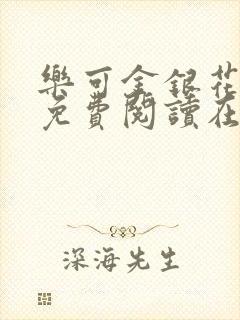 樂可金銀花
免費閱讀在
深海先生